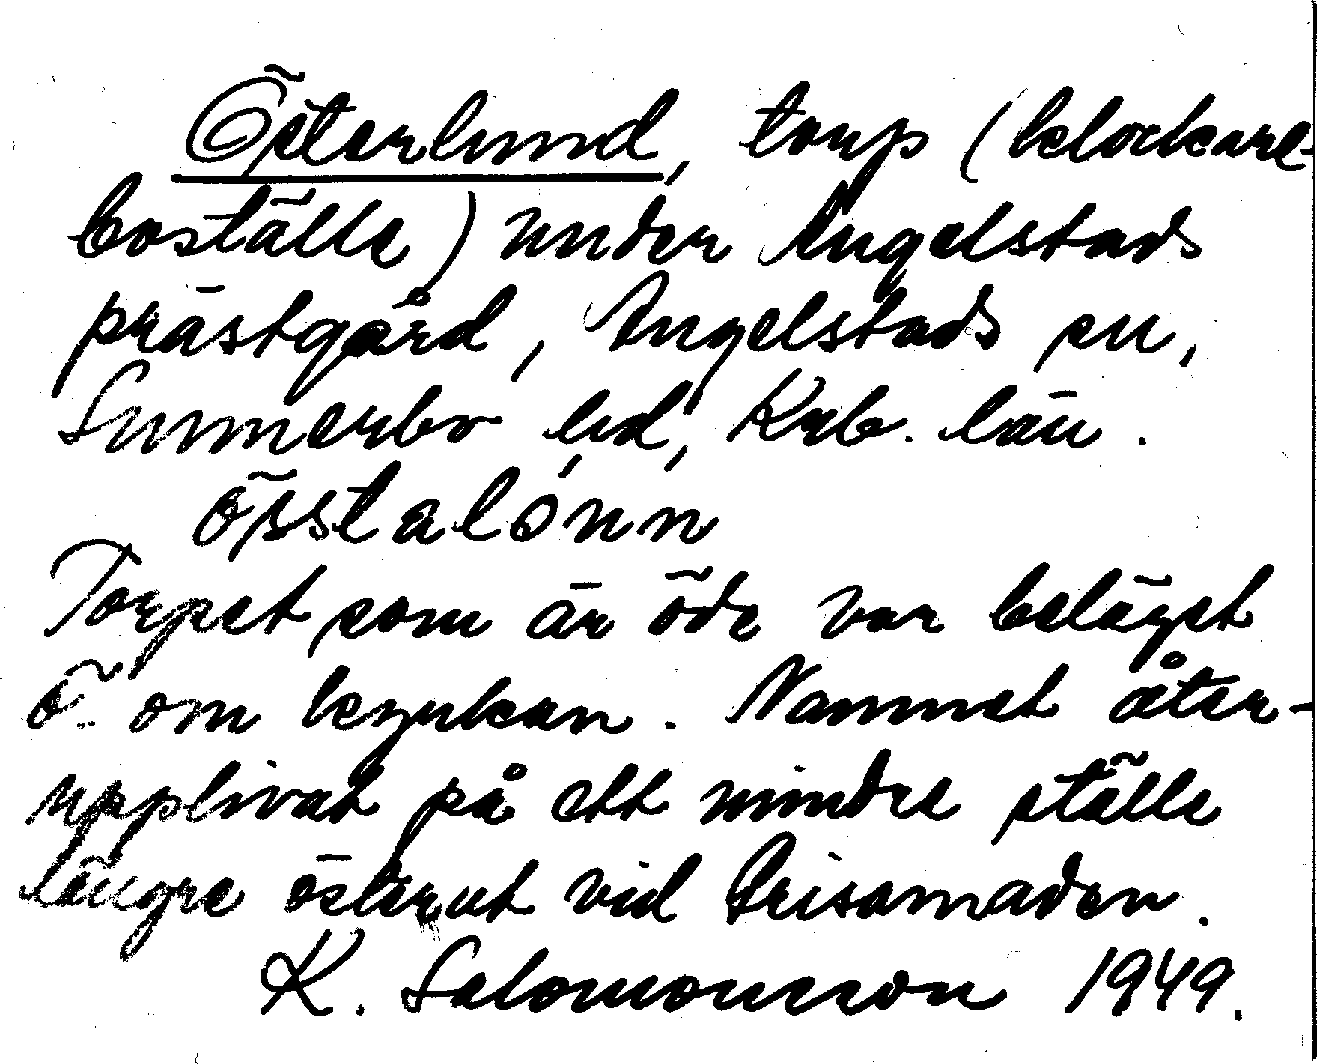 Österlund, torp (klockare-
boställe) under Angelstads
prästgård, Angelstads sn,
Sunnerbo hd, Krb. län.
össtalónn
Torpet som är öde var beläget
ö. om kyrkan. Namnet åter-
upplivat på ett mindre ställe
längre österut vid Prisamaden.
K. Salomonsson 1949.